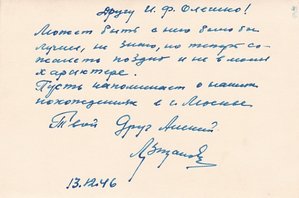 Другу И. Ф. Олешко!
Может быть с нею было бы
лучше, не знаю, но теперь со-
жалеть поздно и не в моем
характере.
Пусть напоминает о наших
похождениях в г. Москве
Твой Друг
13.12.46